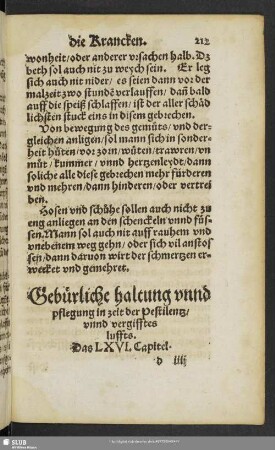 die Krancken. 212
wonheit/oder anderer vrsachen halb. Dz
beth sol auch nit zu weych sein. Er leg
sich auch nit nider/ es seien dann vor der
malzeit zwo stunde verlauffen/ dañ bald
auff die speiß schlaffen/ ist der aller schäd
lichsten stuck eins in disem gebrechen.
Von bewegung des gemüts/ vnd der-
gleichen anligen/sol mann sich in sonder-
heit hüten/vor zorn/wüten/trawren/vn
müt/ kummer/ vnnd hertzenleydt/dann
soliche alle diese gebrechen mehr fürderen
vnd mehren/dann hinderen/oder vertrei
ben.
Hosen vnd schühe sollen auch nicht zu
eng anliegen an den schenckeln vnnd füs-
sen. Mann sol auch nit auff rauhem vnd
vnebenem weg gehn/ oder sich vil anstos
sen/dann daruon wirt der schmertzen er-
wecket vnd gemehret.
Gebürliche haltung vnnd
pflegung in zeit der Pestilentz/
vnnd vergifftes
luffts.
Das LXVI. Capitel.
d iiij
SLUB